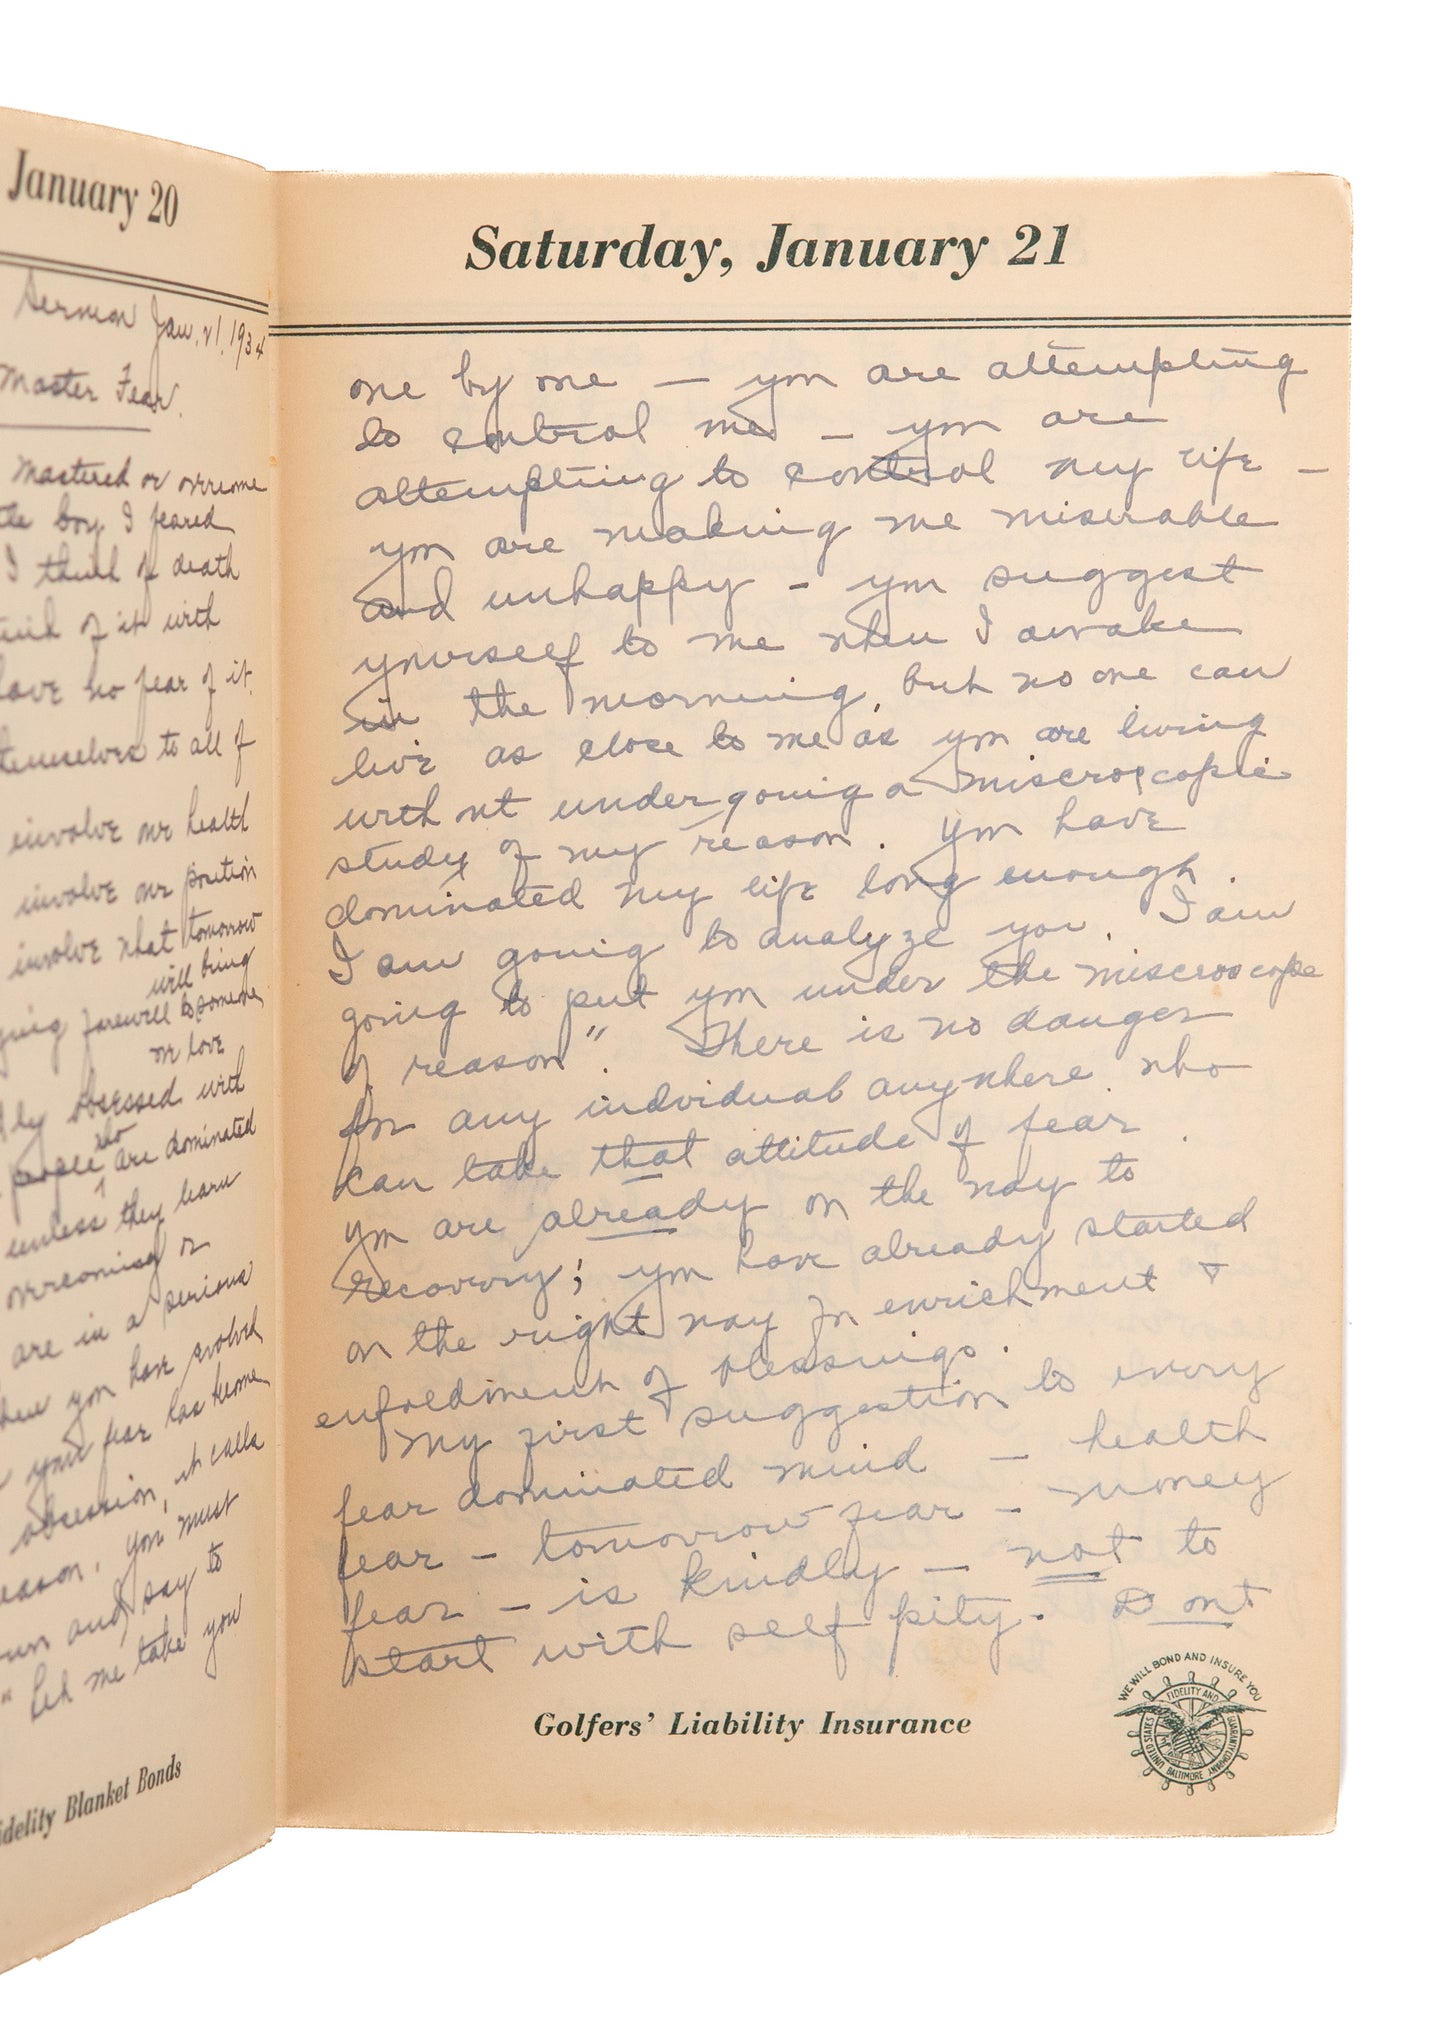 January 20
Sermon Jan. 21. 1934
Master Fear.
mastered or overcome
boy I feared
I think of death
of it with
have no fear of it.
themselves to all of
involve our health
involve our position
involve what tomorrow
will bring
farewell to someone
we love
obsessed with
who
people are dominated
unless they learn
overcoming or
are in a serious
when you have evolved
your fear has become
obsession, it calls
reason. You must
and say to
" Let me take you
Fidelity Blanket Bonds
Saturday, January 21
one by one — you are attempting
to control me — you are
attempting to control my life —
you are making me miserable
and unhappy - you suggest
yourself to me when I awake
in the morning, but no one can
live as close to me as you are living
without undergoing a miscroscopic
study of my reason. You have
dominated my life long enough.
I am going to analyze you. I am
going to put you under the miscroscope
of reason". There is no danger
for any individual anywhere who
can take that attitude of fear.
You are already on the way to
recovery; you have already started
on the right way for enrichment &
enfoldment of blessings.
My first suggestion to every
fear dominated mind — health
fear — tomorrow fear — money
fear — is kindly — not to
start with self pity. Dont
Golfers' Liability Insurance
WE WILL BOND AND INSURE YOU
UNITED STATES FIDELITY AND GUARANTY COMPANY
BALTIMORE